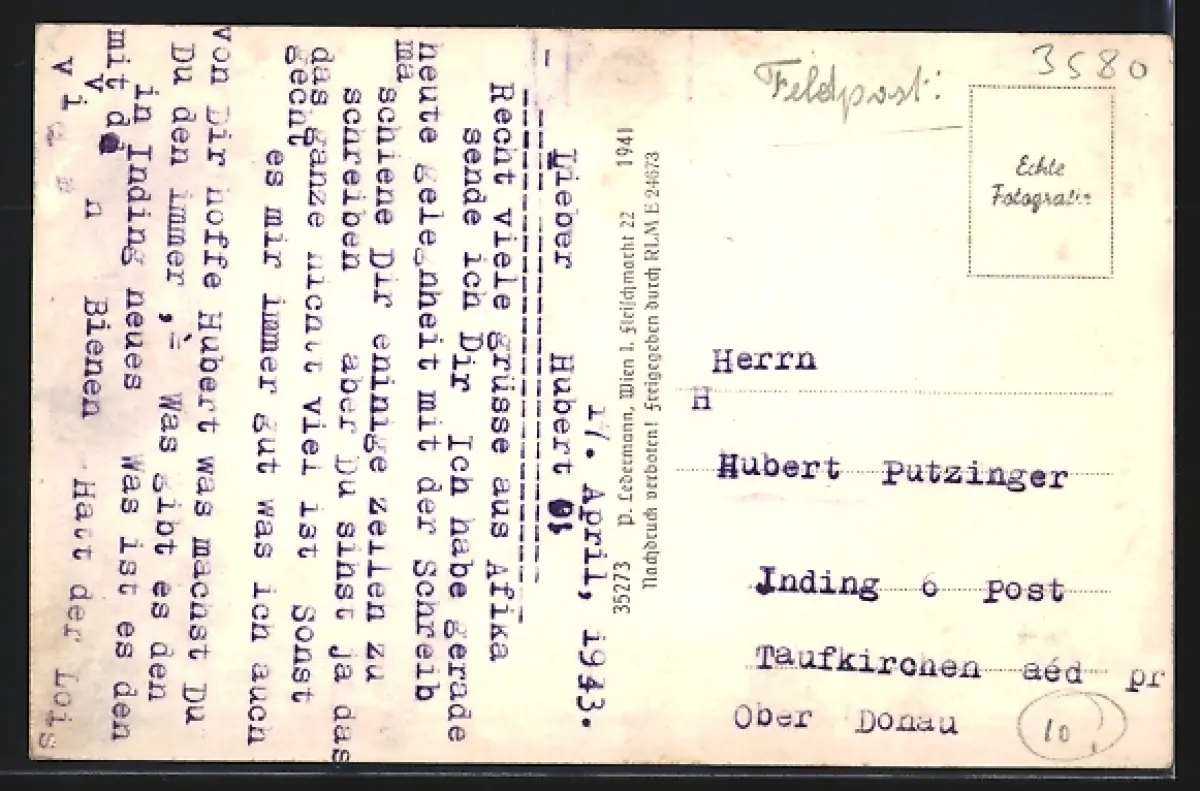 17. April, 1943.
Lieber Hubert
Recht viele grüsse aus Afika
sende ich Dir Ich habe gerade
heute gelegnheit mit der Schreib
ma schiene Dir enige zeilen zu
schreiben aber Du sihst ja das
das ganze nicht viel ist Sonst
gecht es mir immer gut was ich auch
von Dir hoffe Hubert was machst Du
Du den immer, Was gibt es den
in Inding neues Was ist es den
mit d
v v Bienen Hatt der Lois
v i n
35273 P. Ledermann, Wien I. Fleischmarkt 22 1941
Nachdruck verboten! Freigegeben durch RLM E 24673
Feldpost:
3580
Echte
Fotografie
Herrn
H
Hubert Putzinger
Inding 6 post
Taufkirchen aéd pr
Ober Donau
10